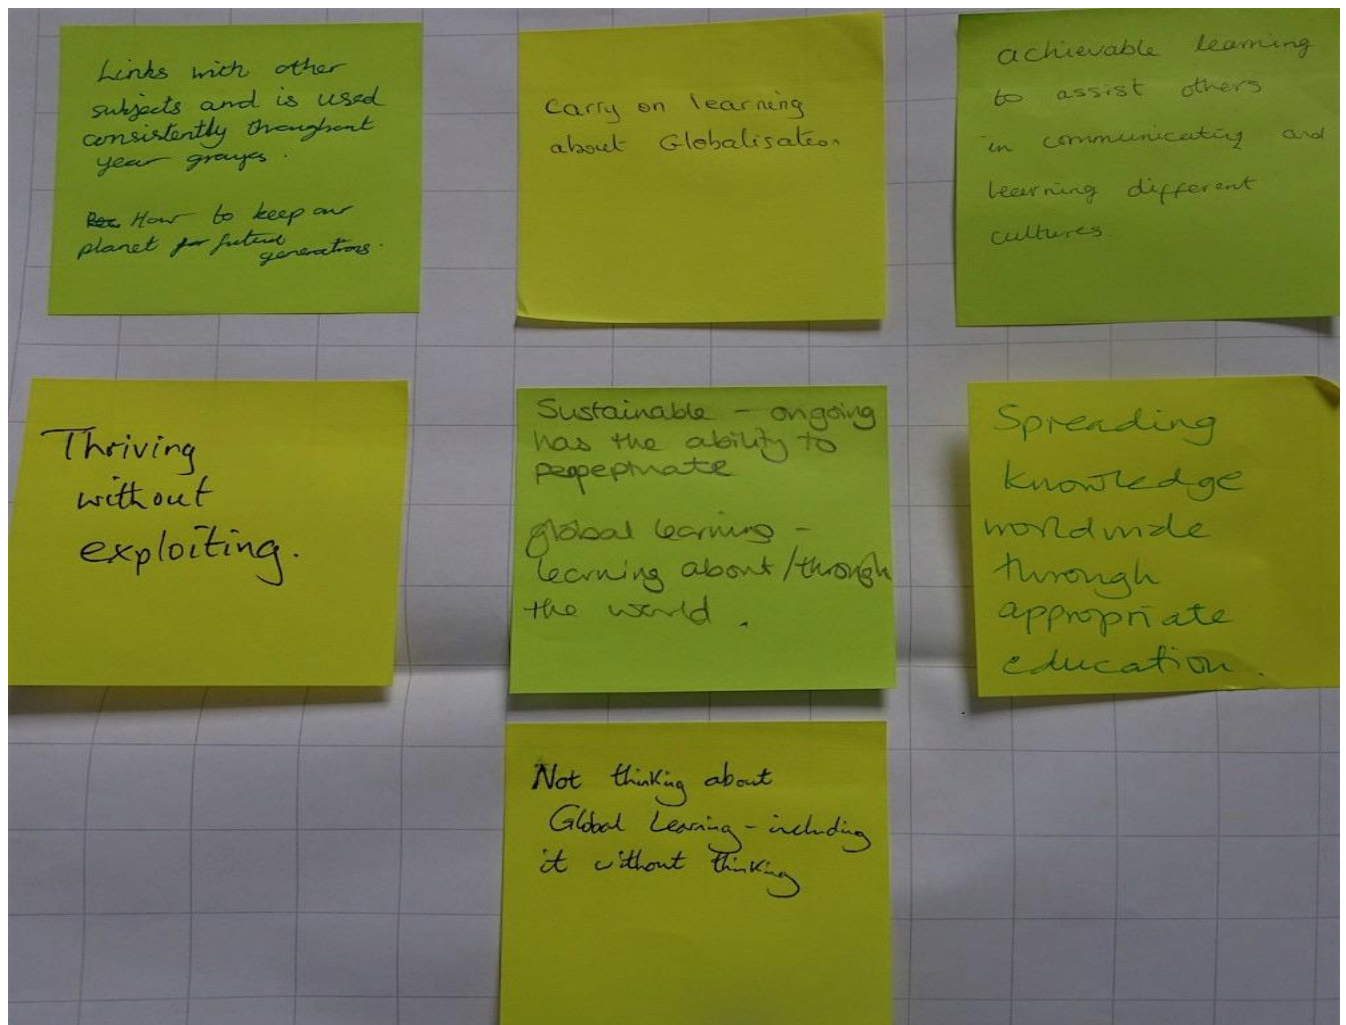 Links with other
subjects and is used
consistently throughout
year groups.
How to keep our
planet for future
generations.
Carry on learning
about Globalisation
achievable learning
to assist others
in communicating and
learning different
cultures.
Thriving
without
exploiting.
Sustainable - ongoing
has the ability to
global learning -
learning about/through
the world.
Spreading
knowledge
worldwide
through
appropriate
education.
Not thinking about
Global Learning - including
it without thinking